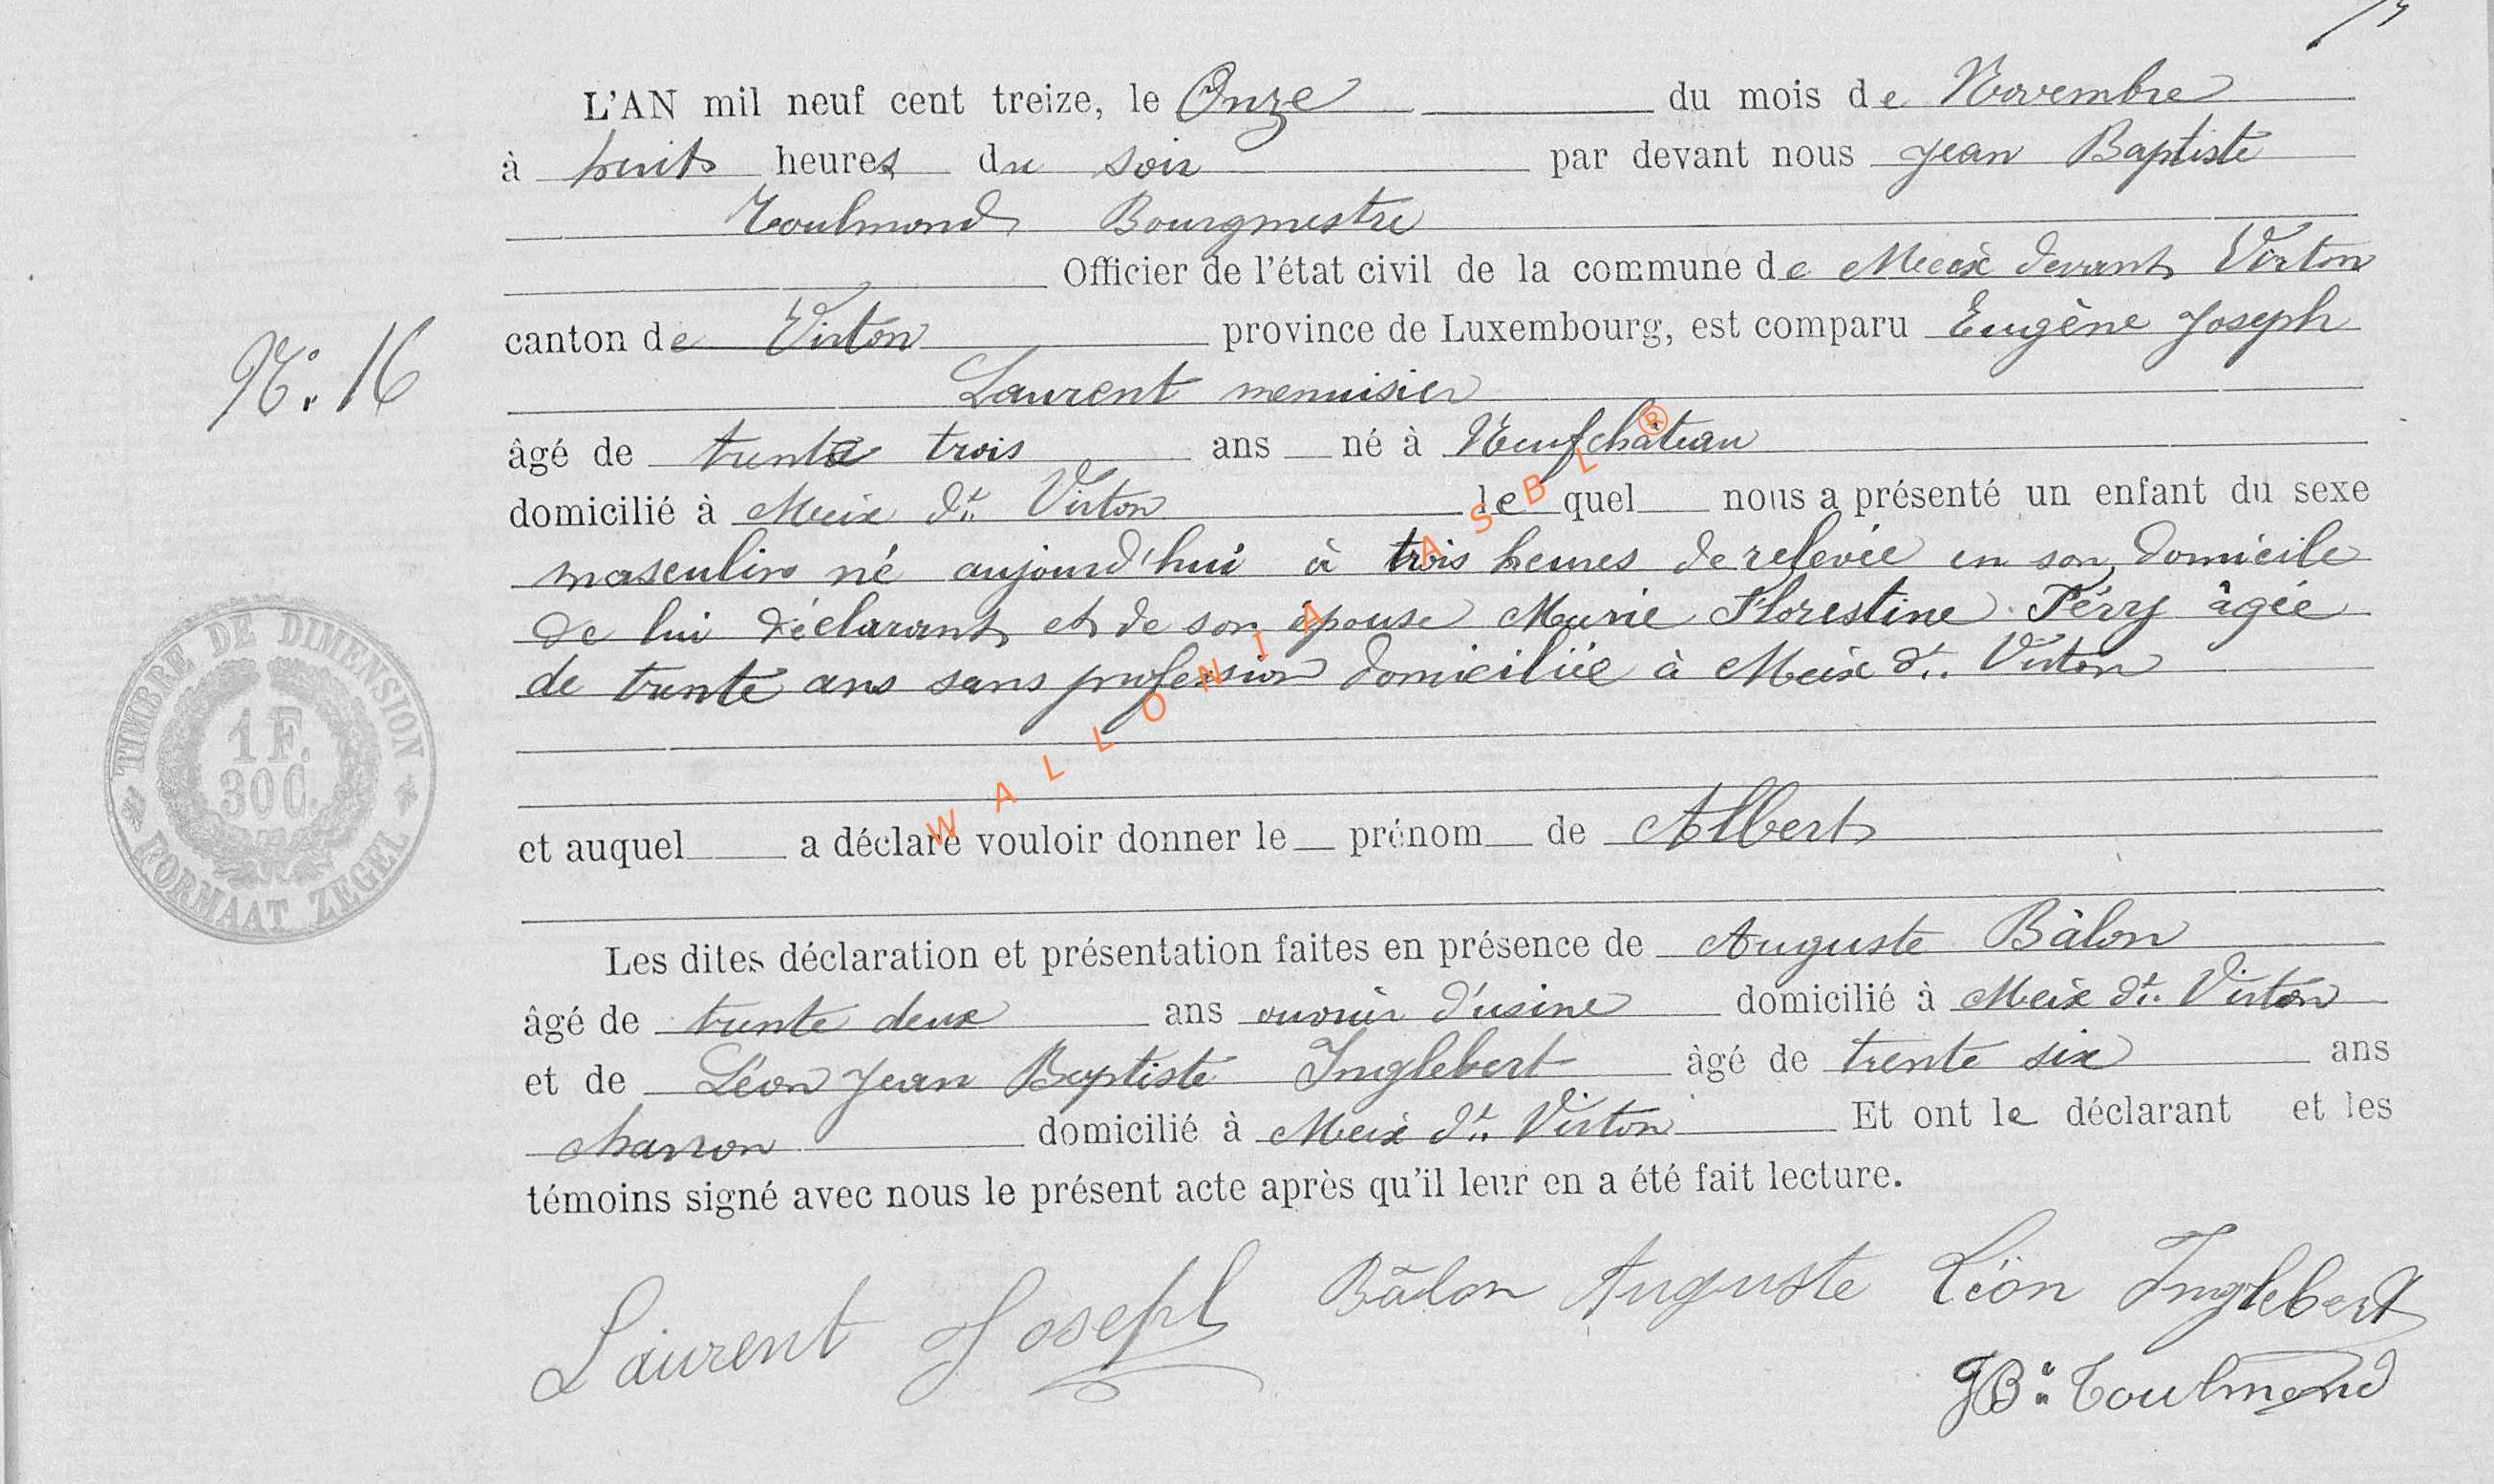 L'AN mil neuf cent treize, le Onze du mois de Novembre
à huit heures du soir par devant nous Jean Baptiste
Toulmond Bourgmestre
Officier de l'état civil de la commune de Meix devant Virton
canton de Virton province de Luxembourg, est comparu Eugène Joseph
N° 16
Laurent menuisier
âgé de trente trois ans né à Neufchâteau
domicilié à Meix dt Virton lequel nous a présenté un enfant du sexe
masculin né aujourd'hui à trois heures de relevée en son domicile
de lui déclarant et de son épouse Marie Florestine Péry âgée
de trente ans sans profession domiciliée à Meix dt Virton
TIMBRE DE DIMENSION
1 F.
30 C.
FORMAAT ZEGEL
WALLONIA ASBL ®
et auquel a déclaré vouloir donner le prénom de Albert
Les dites déclaration et présentation faites en présence de Auguste Bâlon
âgé de trente deux ans ouvrier d'usine domicilié à Meix dt Virton
et de Léon Jean Baptiste Inglebert âgé de trente six ans
charron domicilié à Meix dt Virton Et ont le déclarant et les
témoins signé avec nous le présent acte après qu'il leur en a été fait lecture.
Laurent Joseph Bâlon Auguste Léon Inglebert
JB: Toulmond